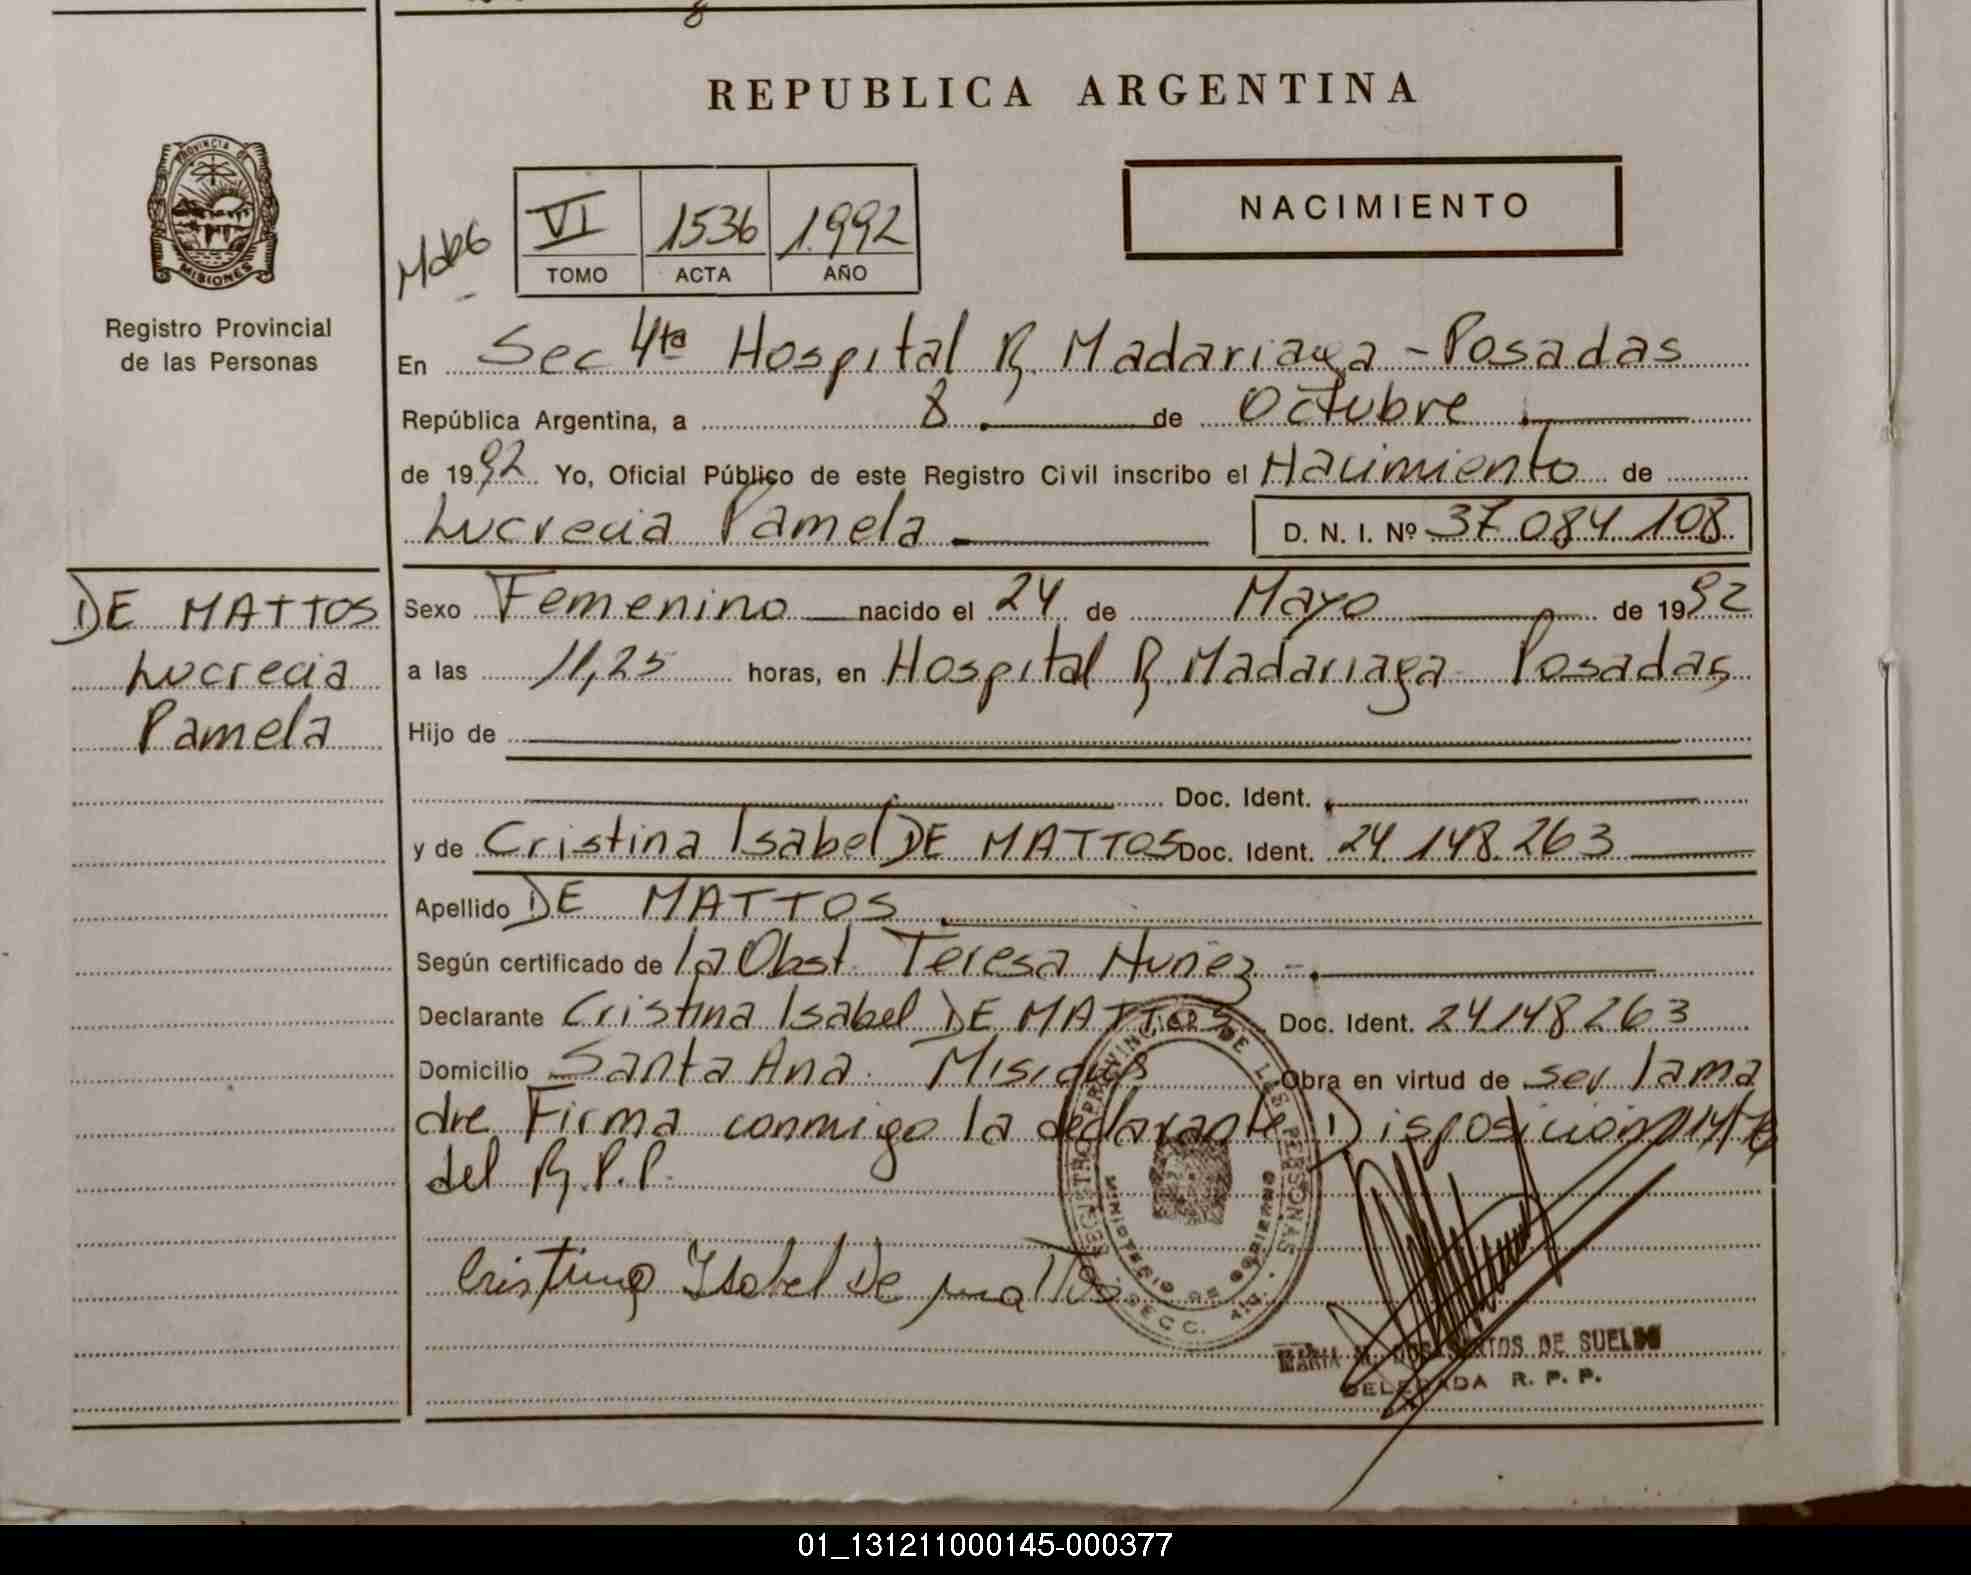 REPUBLICA ARGENTINA
PROVINCIA DE
MISIONES
Registro Provincial
de las Personas
VI 1536 1.992
TOMO ACTA AÑO
NACIMIENTO
En Sec 4ta Hospital R. Madariaga - Posadas
República Argentina, a 8 de Octubre
de 1992 Yo, Oficial Público de este Registro Civil inscribo el Nacimiento de
Lucrecia Pamela D. N. I. Nº 37.084.108
DE MATTOS
Lucrecia
Pamela
Sexo Femenino nacido el 24 de Mayo de 1992
a las 11,25 horas, en Hospital R. Madariaga Posadas
Hijo de
Doc. Ident.
y de Cristina Isabel DE MATTOS Doc. Ident. 24.148.263
Apellido DE MATTOS
Según certificado de la Obst. Teresa Nuñez
Declarante Cristina Isabel DE MATTOS Doc. Ident. 24148263
Domicilio Santa Ana. Misiones Obra en virtud de ser la ma
dre Firma conmigo la declarante Disposición
del R.P.P.
Cristina Isabel De mattos
REGISTRO PROVINCIAL DE LAS PERSONAS
MINISTERIO DE GOBIERNO
MARIA DOS SANTOS DE SUELDO
DELEGADA R. P. P.
01_131211000145-000377